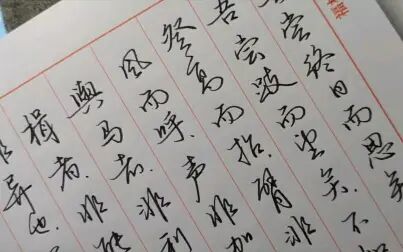 尝终日而思矣
吾尝跂而望矣.不
登高而招.臂非
风而呼.声非加
舆马者.非利
楫者.非能
非异也.